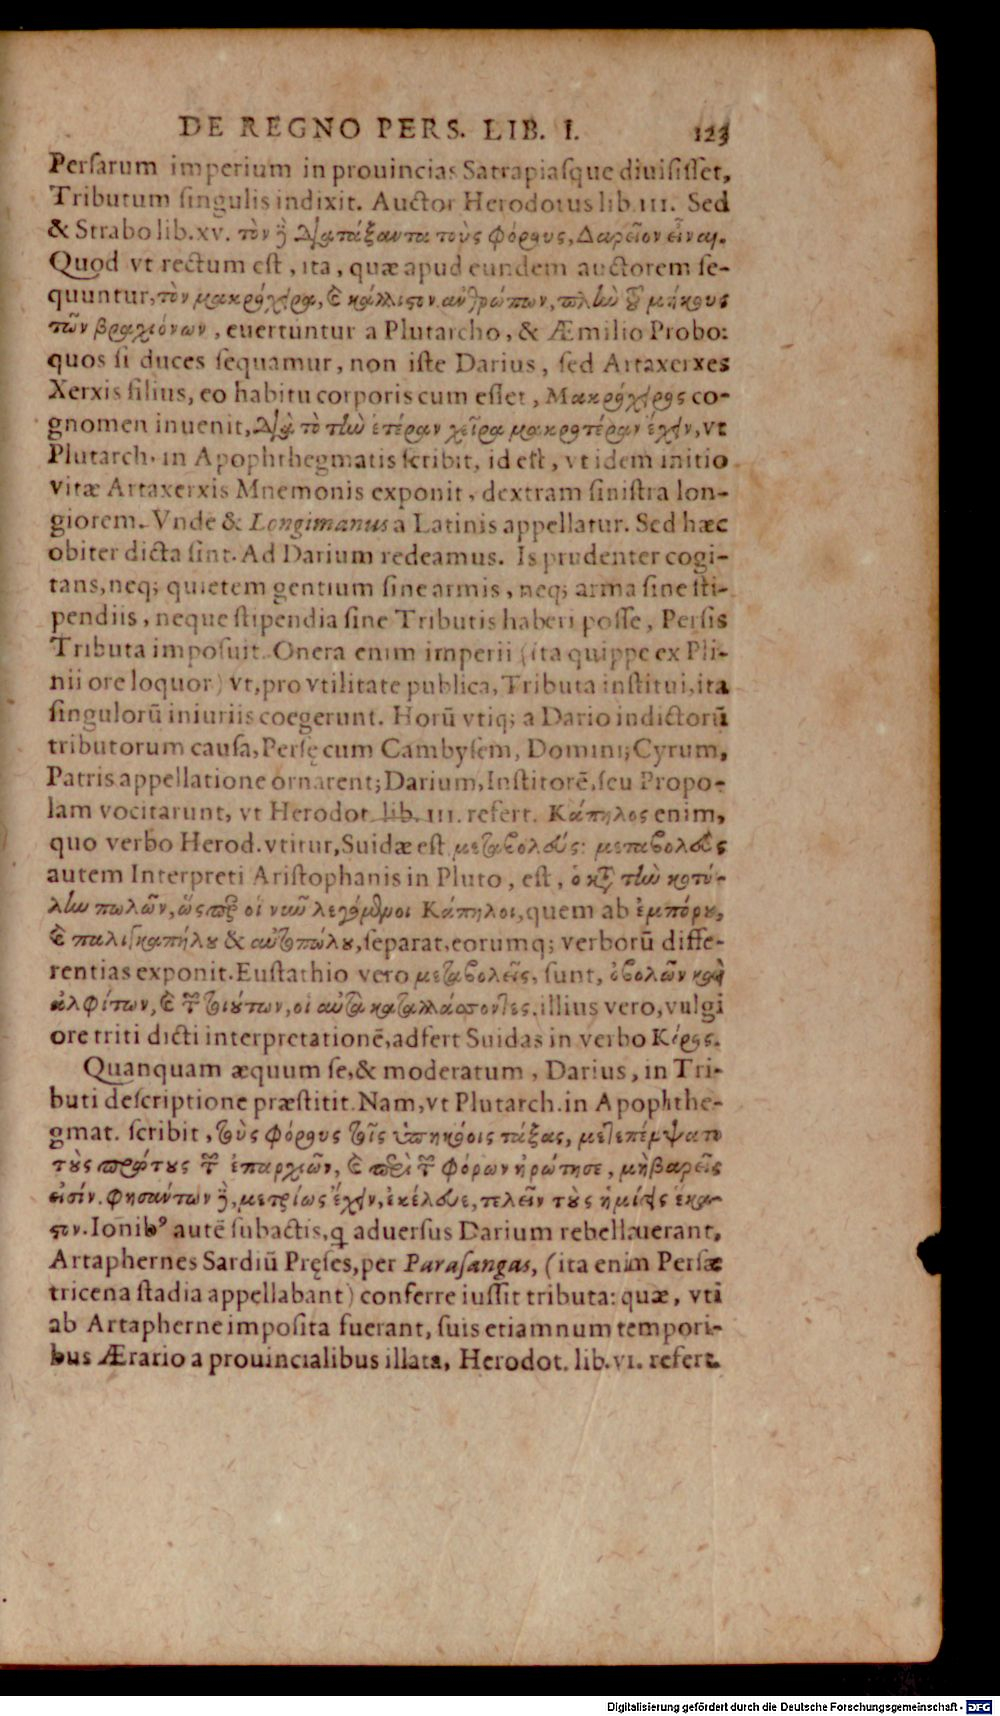 DE REGNO PERS. LIB. I. 123
Perſarum imperium in prouincias Satrapiaſque diuiſiſſet,
Tributum ſingulis indixit. Auctor Herodotus lib. III. Sed
& Strabo lib. XV. τὸν δὲ διατάξαντα τοὺς φόρους, Δαρεῖον εἶναι.
Quod vt rectum eſt, ita, quæ apud eundem auctorem ſe-
quuntur, τὸν μακρόχειρα, & κάλλιστον ἀνθρώπων, πλὴν τοῦ μήκους
τῶν βραχιόνων, euertuntur a Plutarcho, & Æmilio Probo:
quos ſi duces ſequamur, non iſte Darius, ſed Artaxerxes
Xerxis filius, eo habitu corporis cum eſſet, Μακρόχειρος co-
gnomen inuenit, διὰ τὸ τὴν ἑτέραν χεῖρα μακροτέραν ἔχειν, vt
Plutarch. in Apophthegmatis ſcribit, id eſt, vt idem initio
vitæ Artaxerxis Mnemonis exponit, dextram ſiniſtra lon-
giorem. Vnde & Longimanus a Latinis appellatur. Sed hæc
obiter dicta ſint. Ad Darium redeamus. Is prudenter cogi-
tans, neq; quietem gentium ſine armis, neq; arma ſine ſti-
pendiis, neque ſtipendia ſine Tributis haberi poſſe, Perſis
Tributa impoſuit. Onera enim imperii (ita quippe ex Pli-
nii ore loquor) vt, pro vtilitate publica, Tributa inſtitui, ita
ſingulorū iniuriis coegerunt. Horū vtiq; a Dario indictorū
tributorum cauſa, Perſę cum Cambyſem, Domini; Cyrum,
Patris appellatione ornarent; Darium, Inſtitorē, ſeu Propo-
lam vocitarunt, vt Herodot. lib. III. refert. Κάπηλος enim,
quo verbo Herod. vtitur, Suidæ eſt μεταβολεύς: μεταβολεὺς
autem Interpreti Ariſtophanis in Pluto, eſt, ὁ κατὰ τὴν κοτύ-
λην πωλῶν, ὥσπερ οἱ νῦν λεγόμενοι Κάπηλοι, quem ab ἐμπόρου,
& παλιγκαπήλου & αὐτοπώλου, ſeparat, eorumq; verborū diffe-
rentias exponit. Euſtathio vero μεταβολεῖς, ſunt, ὀβολῶν καὶ
ἀλφίτων, & τῶν τοιούτων, οἱ αὐτὰ καταλλάσσοντες. illius vero, vulgi
ore triti dicti interpretationē, adfert Suidas in verbo Κόρος.
Quanquam æquum ſe, & moderatum, Darius, in Tri-
buti deſcriptione præſtitit. Nam, vt Plutarch. in Apophthe-
gmat. ſcribit, τοὺς φόρους τοῖς ὑπηκόοις τάξας, μετεπέμψατο
τοὺς πρώτους τῶν ἐπαρχιῶν, & περὶ τῶν φόρων ἠρώτησε, μὴ βαρεῖς
εἰσίν. φησάντων δὲ, μετρίως ἔχειν, ἐκέλευε, τελεῖν τοὺς ἡμίσεις ἕκα-
στον. Ionib⁹ autē ſubactis, q aduerſus Darium rebellauerant,
Artaphernes Sardiū Pręſes, per Paraſangas, (ita enim Perſæ
tricena ſtadia appellabant) conferre iuſſit tributa: quæ, vti
ab Artapherne impoſita fuerant, ſuis etiamnum tempori-
bus Ærario a prouincialibus illata, Herodot. lib. VI. refert.
Digitalisierung gefördert durch die Deutsche Forschungsgemeinschaft - DFG